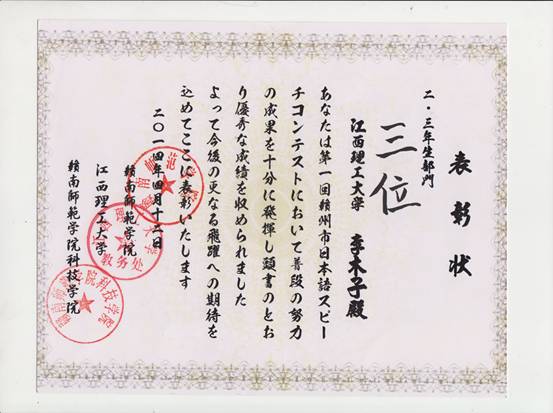 表彰状
二・三年生部門
三位
江西理工大学 李木子殿
あなたは第一回贛州市日本語スピー
チコンテストにおいて普段の努力
の成果を十分に発揮し頭書のとお
り優秀な成績を収められました
よって今後の更なる飛躍への期待を
込めてここに表彰いたします
二〇一四年四月十二日
贛南师范学院
江西理工大学
贛南师範学院科技学院
教务处